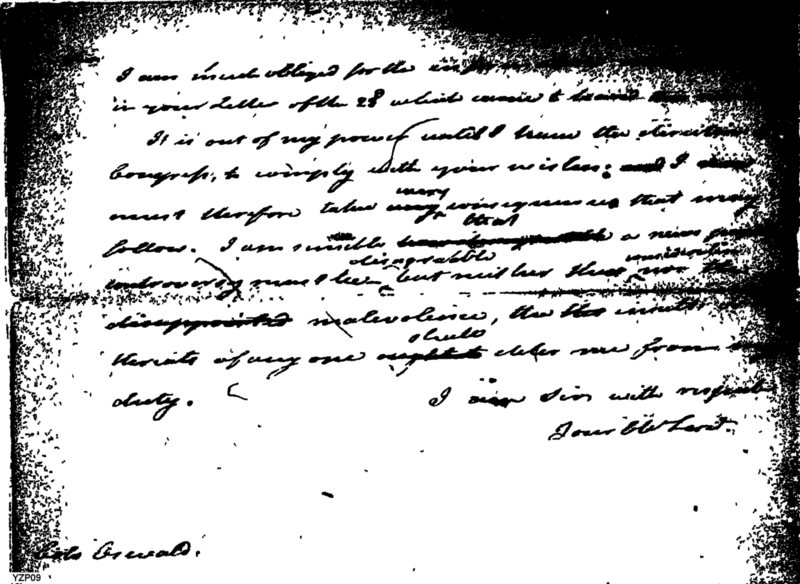 I am much obliged for the
in your Letter of the 28th which came to hand
It is out of my power until I know the
Congress, to comply with your wishes: and I
must therefore take every consequence that may
follow. I am sensible that a news paper
controversy must be disagreeable but neither that consideration nor the
disappointed malevolence, the the insults
threats of any one ought to should deter me from my
duty.
I am Sir with respect
Your Obt Servt.
Colo Oswald.
YZP09